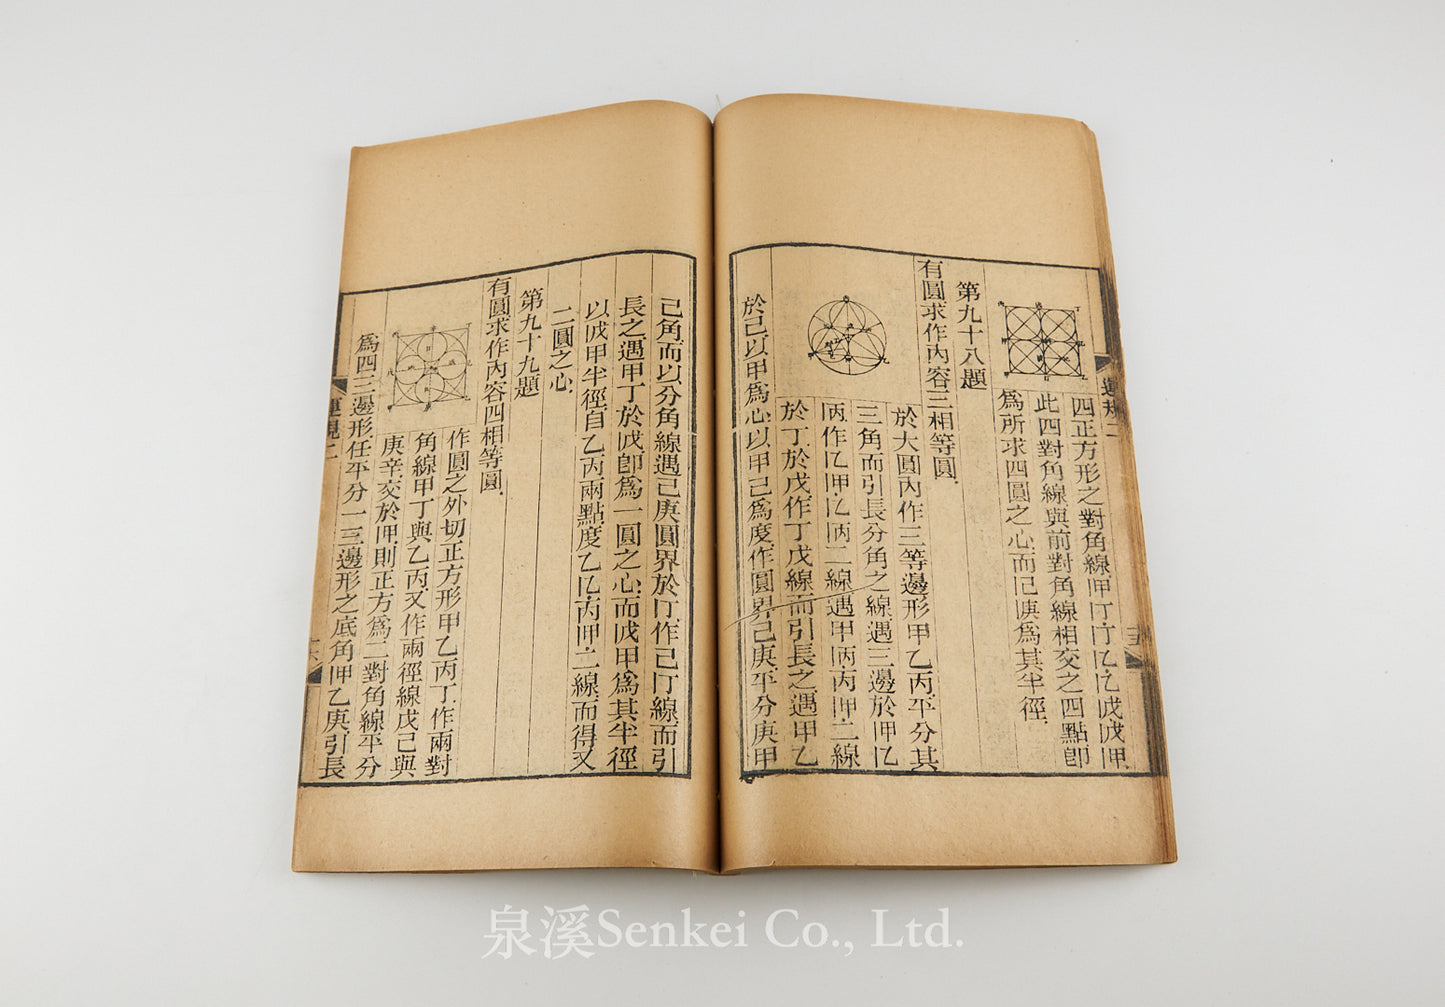 四正方形之對角線呷叮叮𠮙𠮙呷
此四對角線與前對角線相交之四點卽
爲所求四圓之心而爲其半徑
第九十八題
有圓求作內容三相等圓
於大圓內作三等邊形甲乙丙平分其
三角而引長分角之線遇三邊於呷𠮙
作𠮙甲𠮙二線遇甲丙呷二線
於丁於戊作丁戊線而引長之遇甲乙
於己以甲爲心以甲己爲度作圓界己庚平分庚甲
運規二
己角而以分角線遇己庚圓界於叮作己叮線而引
長之遇甲丁於卽爲一圓之心而甲爲其半徑
以甲半徑自乙丙兩點度乙𠮙丙呷二線而得又
二圓之心
第九十九題
有圓求作內容四相等圓
作圓之外切正方形甲乙丙丁作兩對
角線甲丁與乙丙又作兩徑線戊己與
庚辛交於呷則正方爲二對角線平分
爲四三邊形任平分一三邊形之底角呷乙庚引長
運規二
泉溪Senkei Co., Ltd.